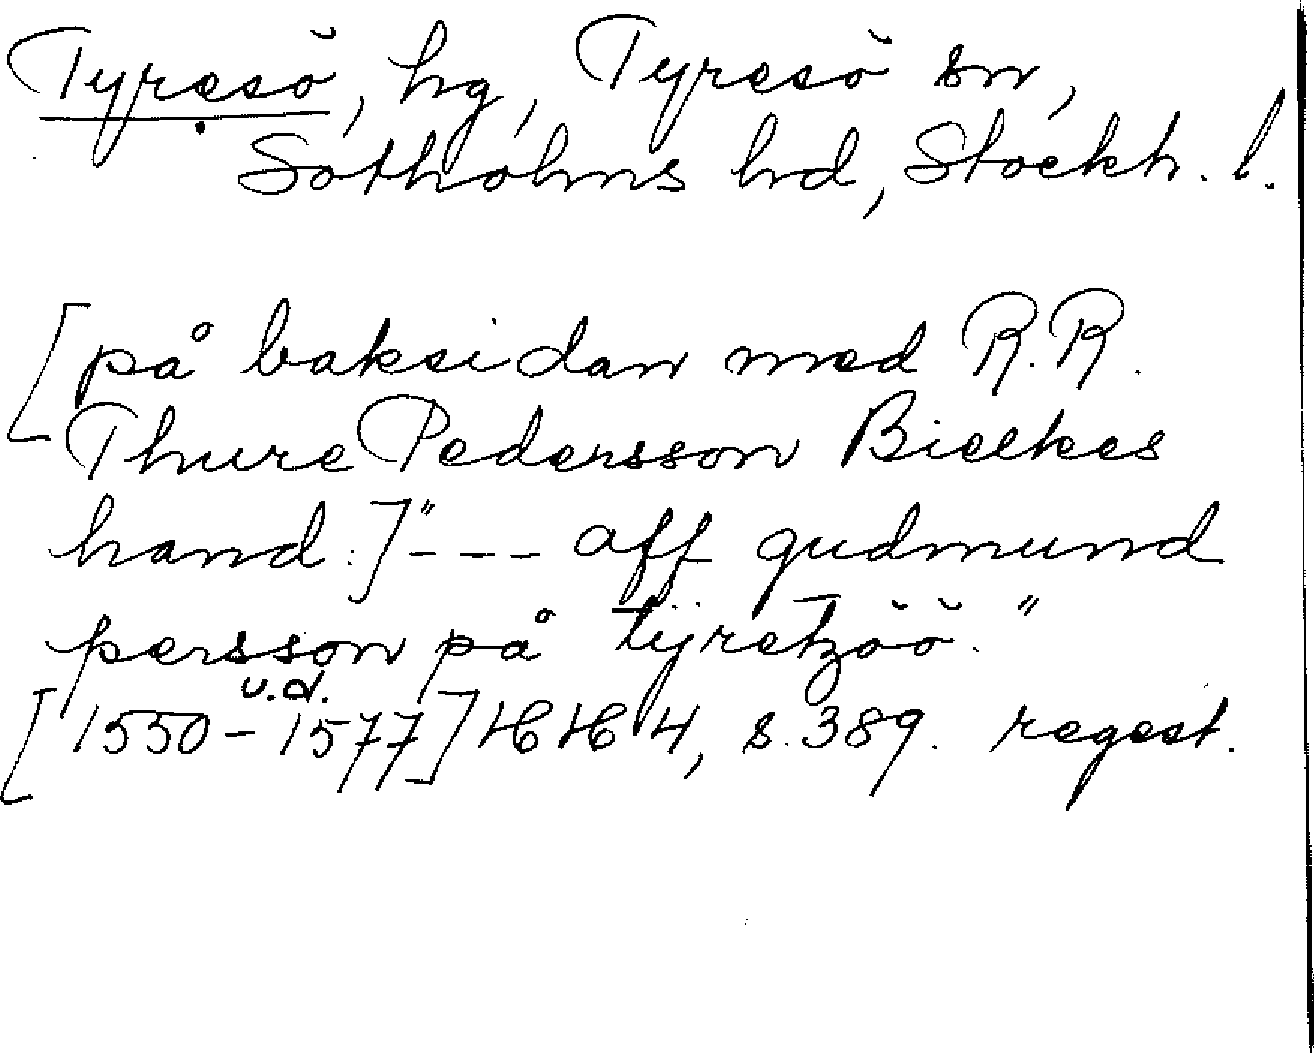 Tyresö, hg, Tyresö sn,
Sotholms hd, Stockh. l.
[på baksidan med R.R.
Thure Pedersson Bielkes
hand:]"--- aff gudmund
persson på tÿretzöö."
u.d.
[1550-1577] HH 4, s. 389. regest.